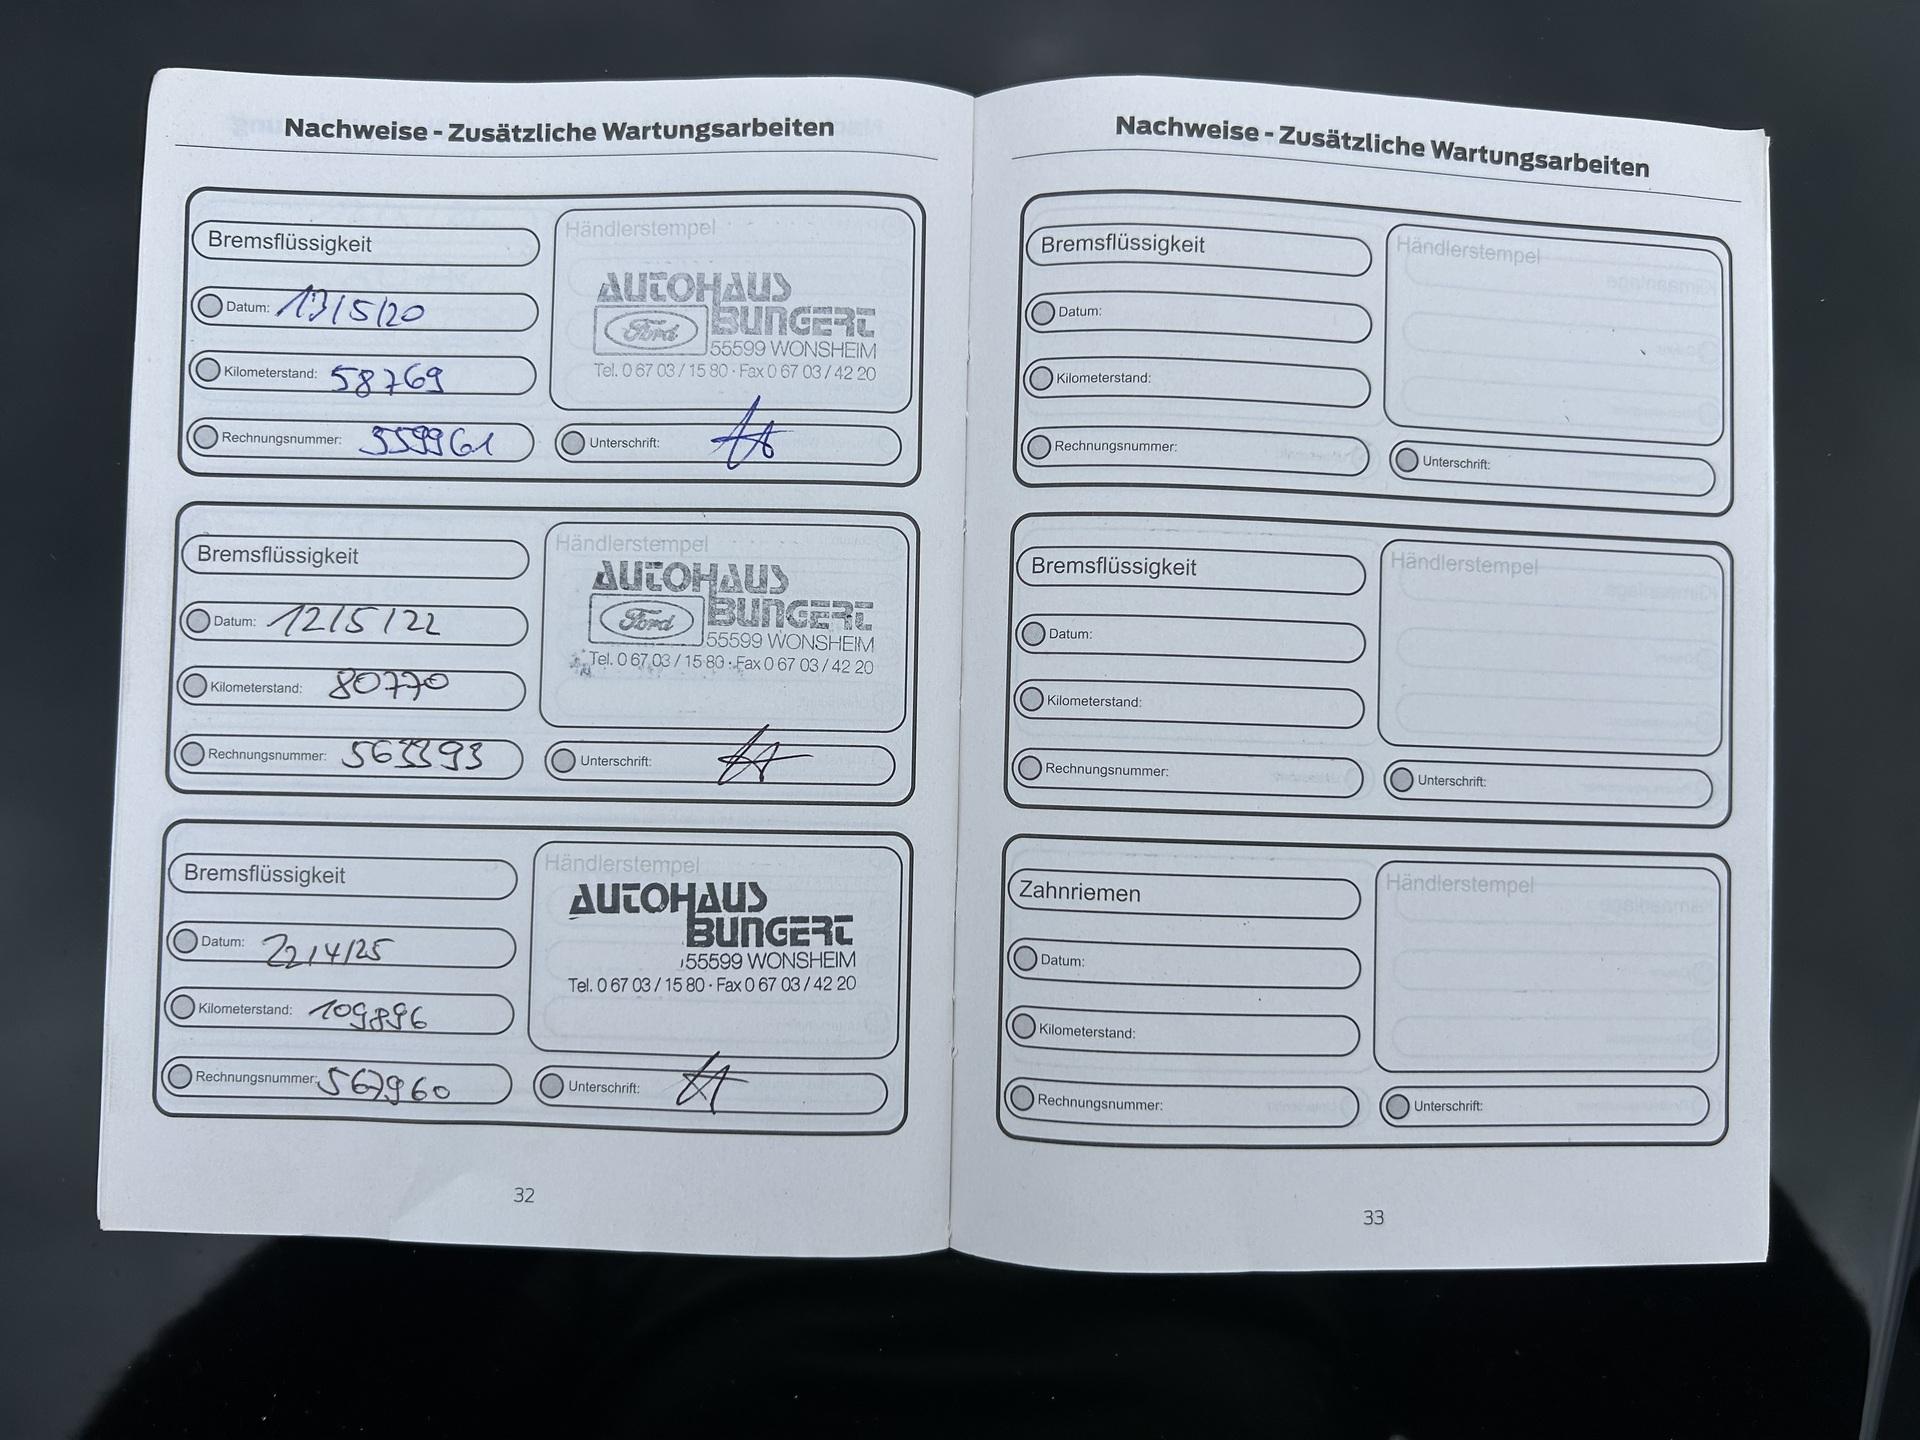 Nachweise - Zusätzliche Wartungsarbeiten
Bremsflüssigkeit
Datum: 13/5/20
Kilometerstand: 58769
Rechnungsnummer: 559961
Händlerstempel
AUTOHAUS
Ford BUNGERT
55599 WONSHEIM
Tel. 0 67 03 / 15 80 · Fax 0 67 03 / 42 20
Unterschrift:
Bremsflüssigkeit
Datum: 12/5/22
Kilometerstand: 80770
Rechnungsnummer: 563393
Händlerstempel
AUTOHAUS
Ford BUNGERT
55599 WONSHEIM
Tel. 0 67 03 / 15 80 · Fax 0 67 03 / 42 20
Unterschrift:
Bremsflüssigkeit
Datum: 22/4/25
Kilometerstand: 109896
Rechnungsnummer: 567960
Händlerstempel
AUTOHAUS
BUNGERT
55599 WONSHEIM
Tel. 0 67 03 / 15 80 · Fax 0 67 03 / 42 20
Unterschrift:
32
Nachweise - Zusätzliche Wartungsarbeiten
Bremsflüssigkeit
Datum:
Kilometerstand:
Rechnungsnummer:
Händlerstempel
Unterschrift:
Bremsflüssigkeit
Datum:
Kilometerstand:
Rechnungsnummer:
Händlerstempel
Unterschrift:
Zahnriemen
Datum:
Kilometerstand:
Rechnungsnummer:
Händlerstempel
Unterschrift:
33